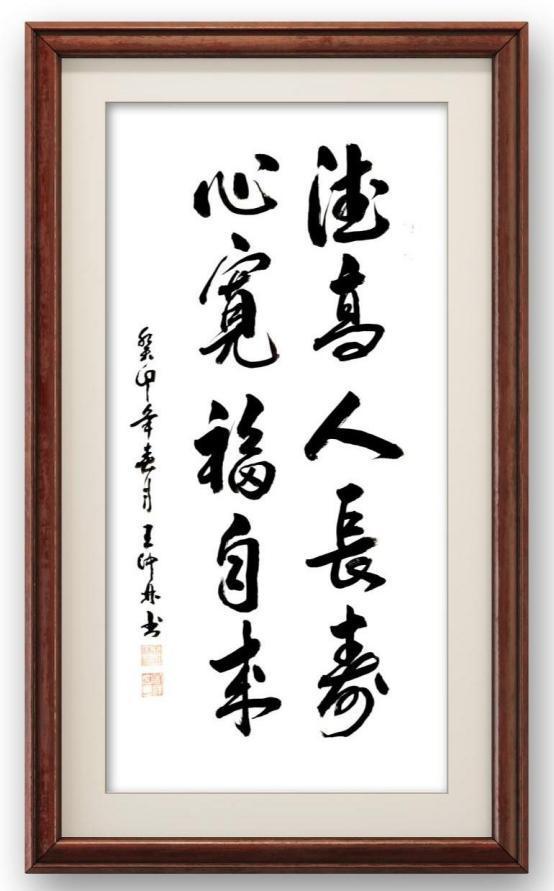 德高人長壽
心寬福自来
癸卯年春月王仲林书